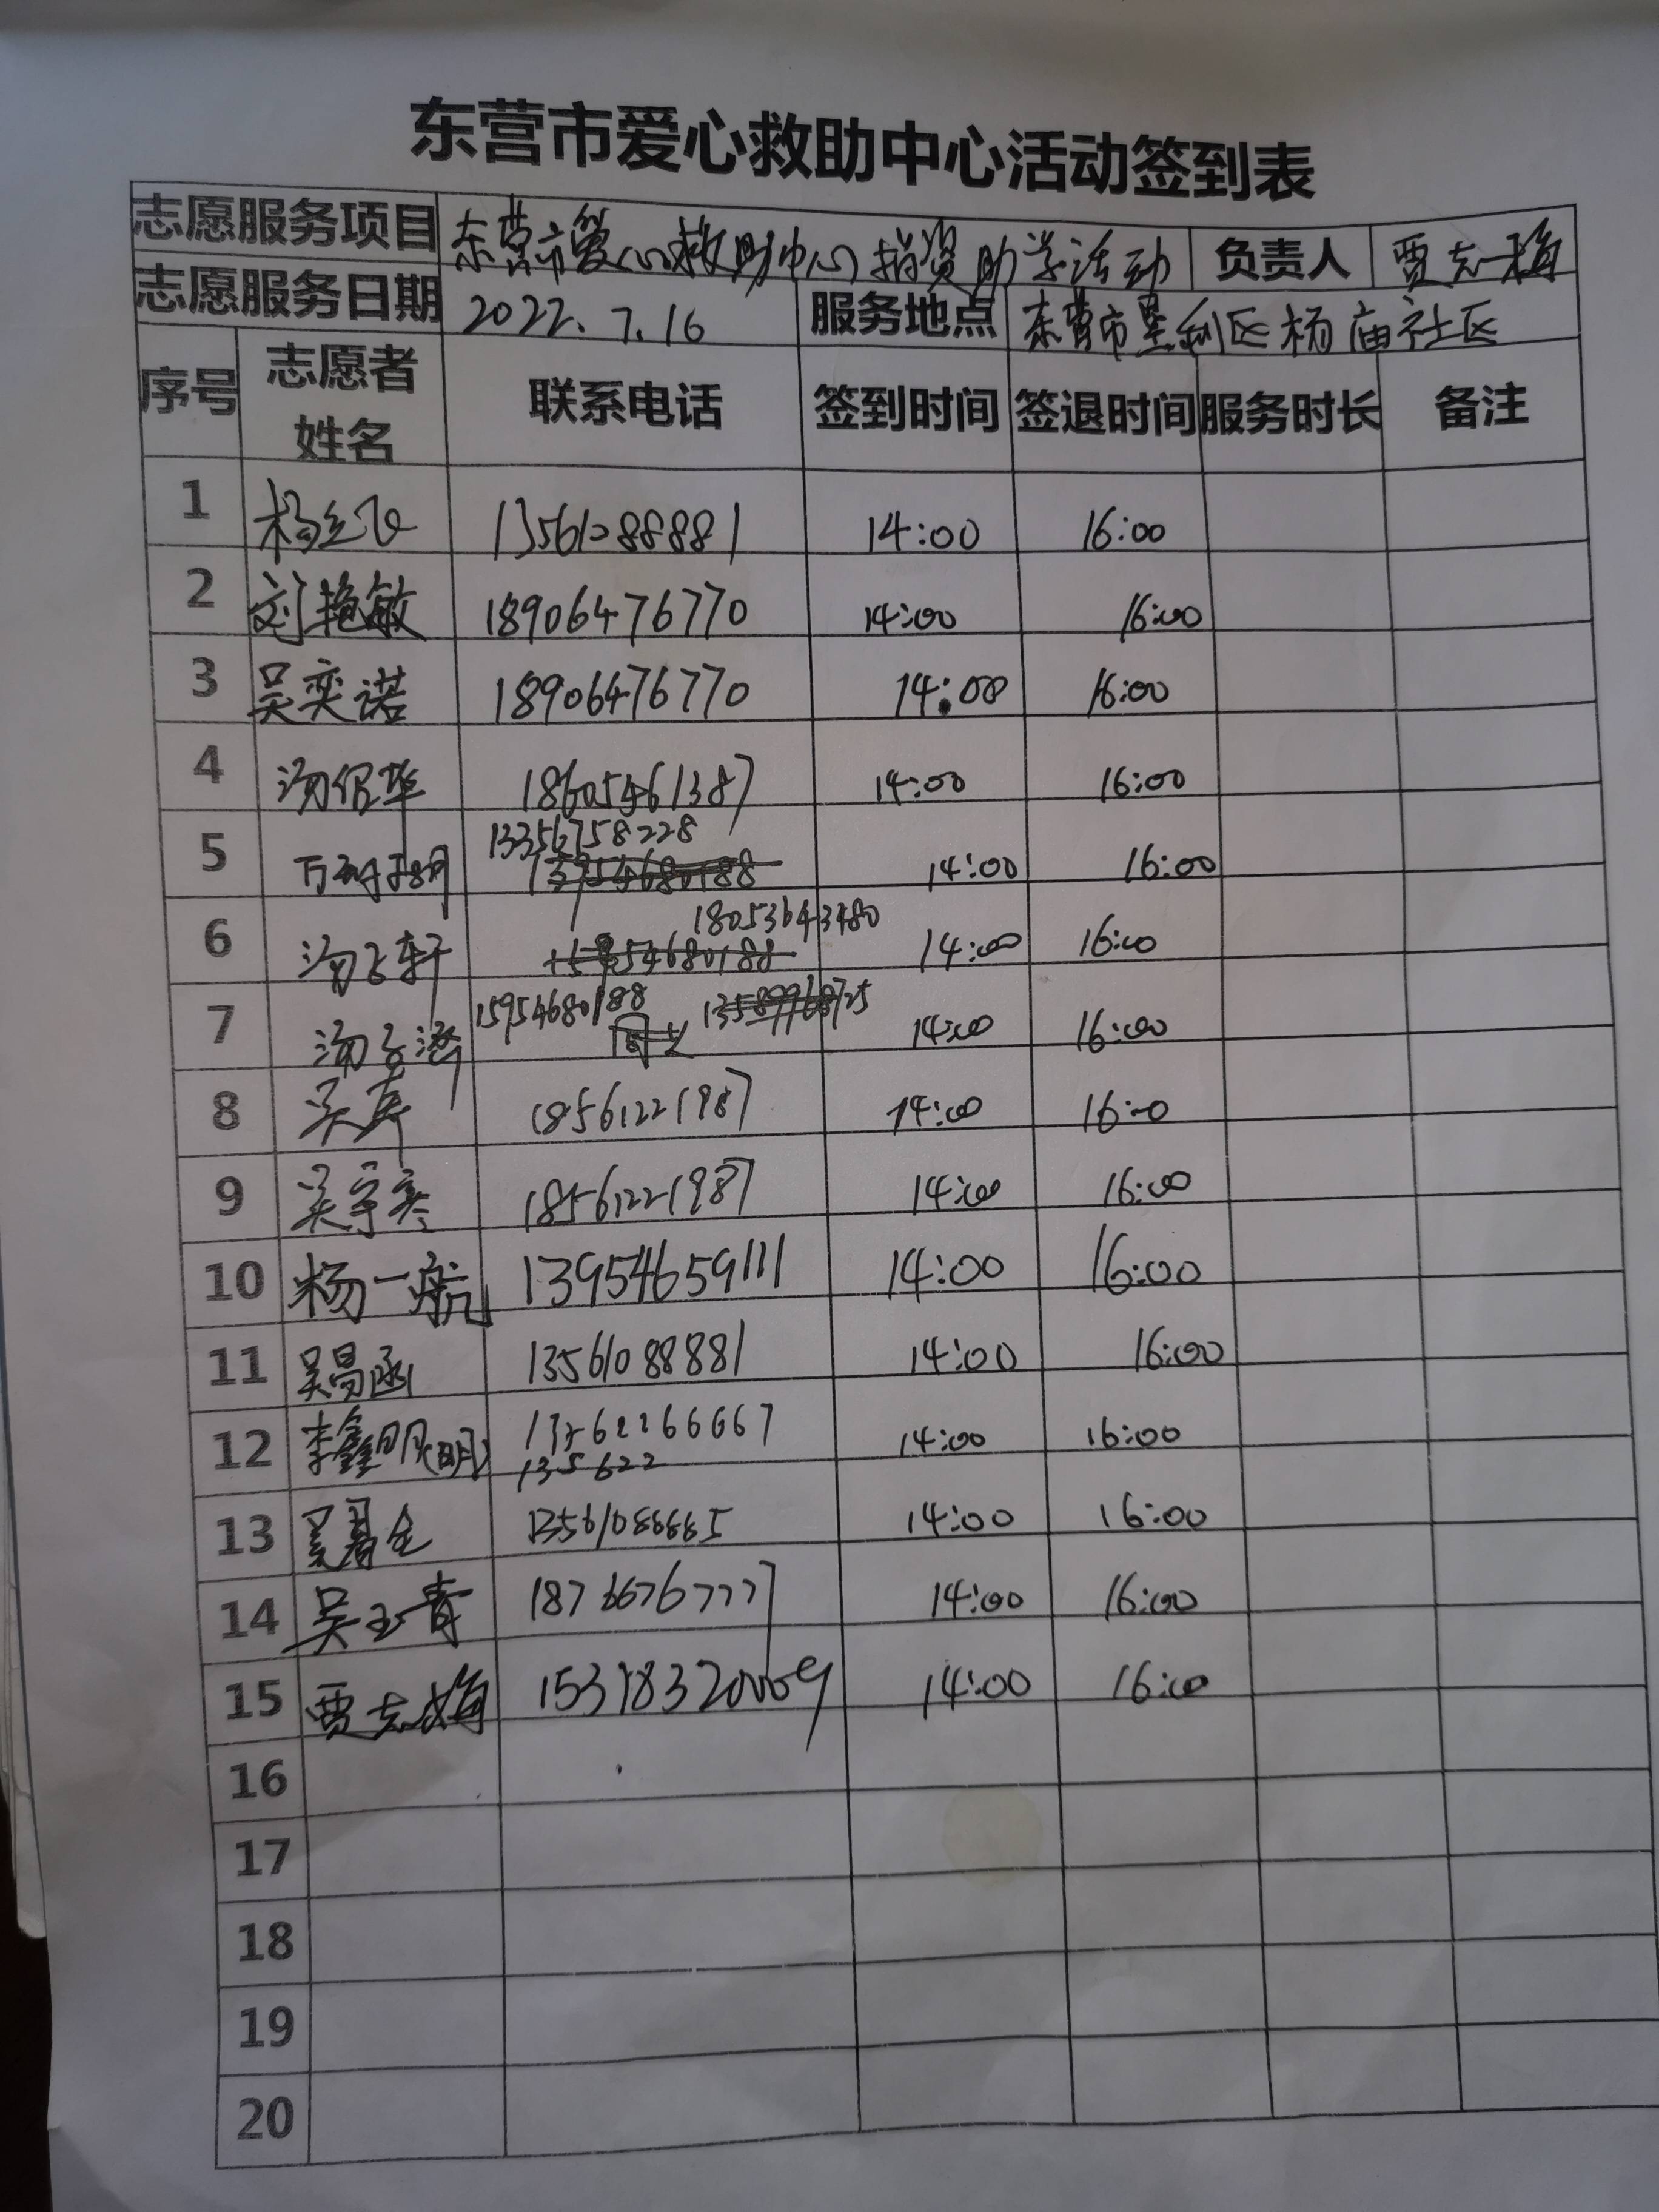 东营市爱心救助中心活动签到表
志愿服务项目 东营市爱心救助中心捐资助学活动 负责人 贾志梅
志愿服务日期 2022.7.16 服务地点 东营市垦利区杨庙社区
序号 志愿者姓名 联系电话 签到时间 签退时间 服务时长 备注
1 13561088881 14:00 16:00
2 刘艳敏 18906476770 14:00 16:00
3 吴奕诺 18906476770 14:00 16:00
4 汤保华 18605461387 14:00 16:00
13356758228
5 14:00 16:00
18053643480
6 汤子轩 15954680188 14:00 16:00
7 15954680188 13589968725 14:00 16:00
8 18561221987 14:00 16:00
9 18561221987 14:00 16:00
10 杨一航 13954659111 14:00 16:00
11 吴昌函 13561088881 14:00 16:00
12 李鑫明(明) 14:00 16:00
135622
13 14:00 16:00
14 吴玉青 18766767777 14:00 16:00
15 贾志梅 14:00 16:00
16
17
18
19
20